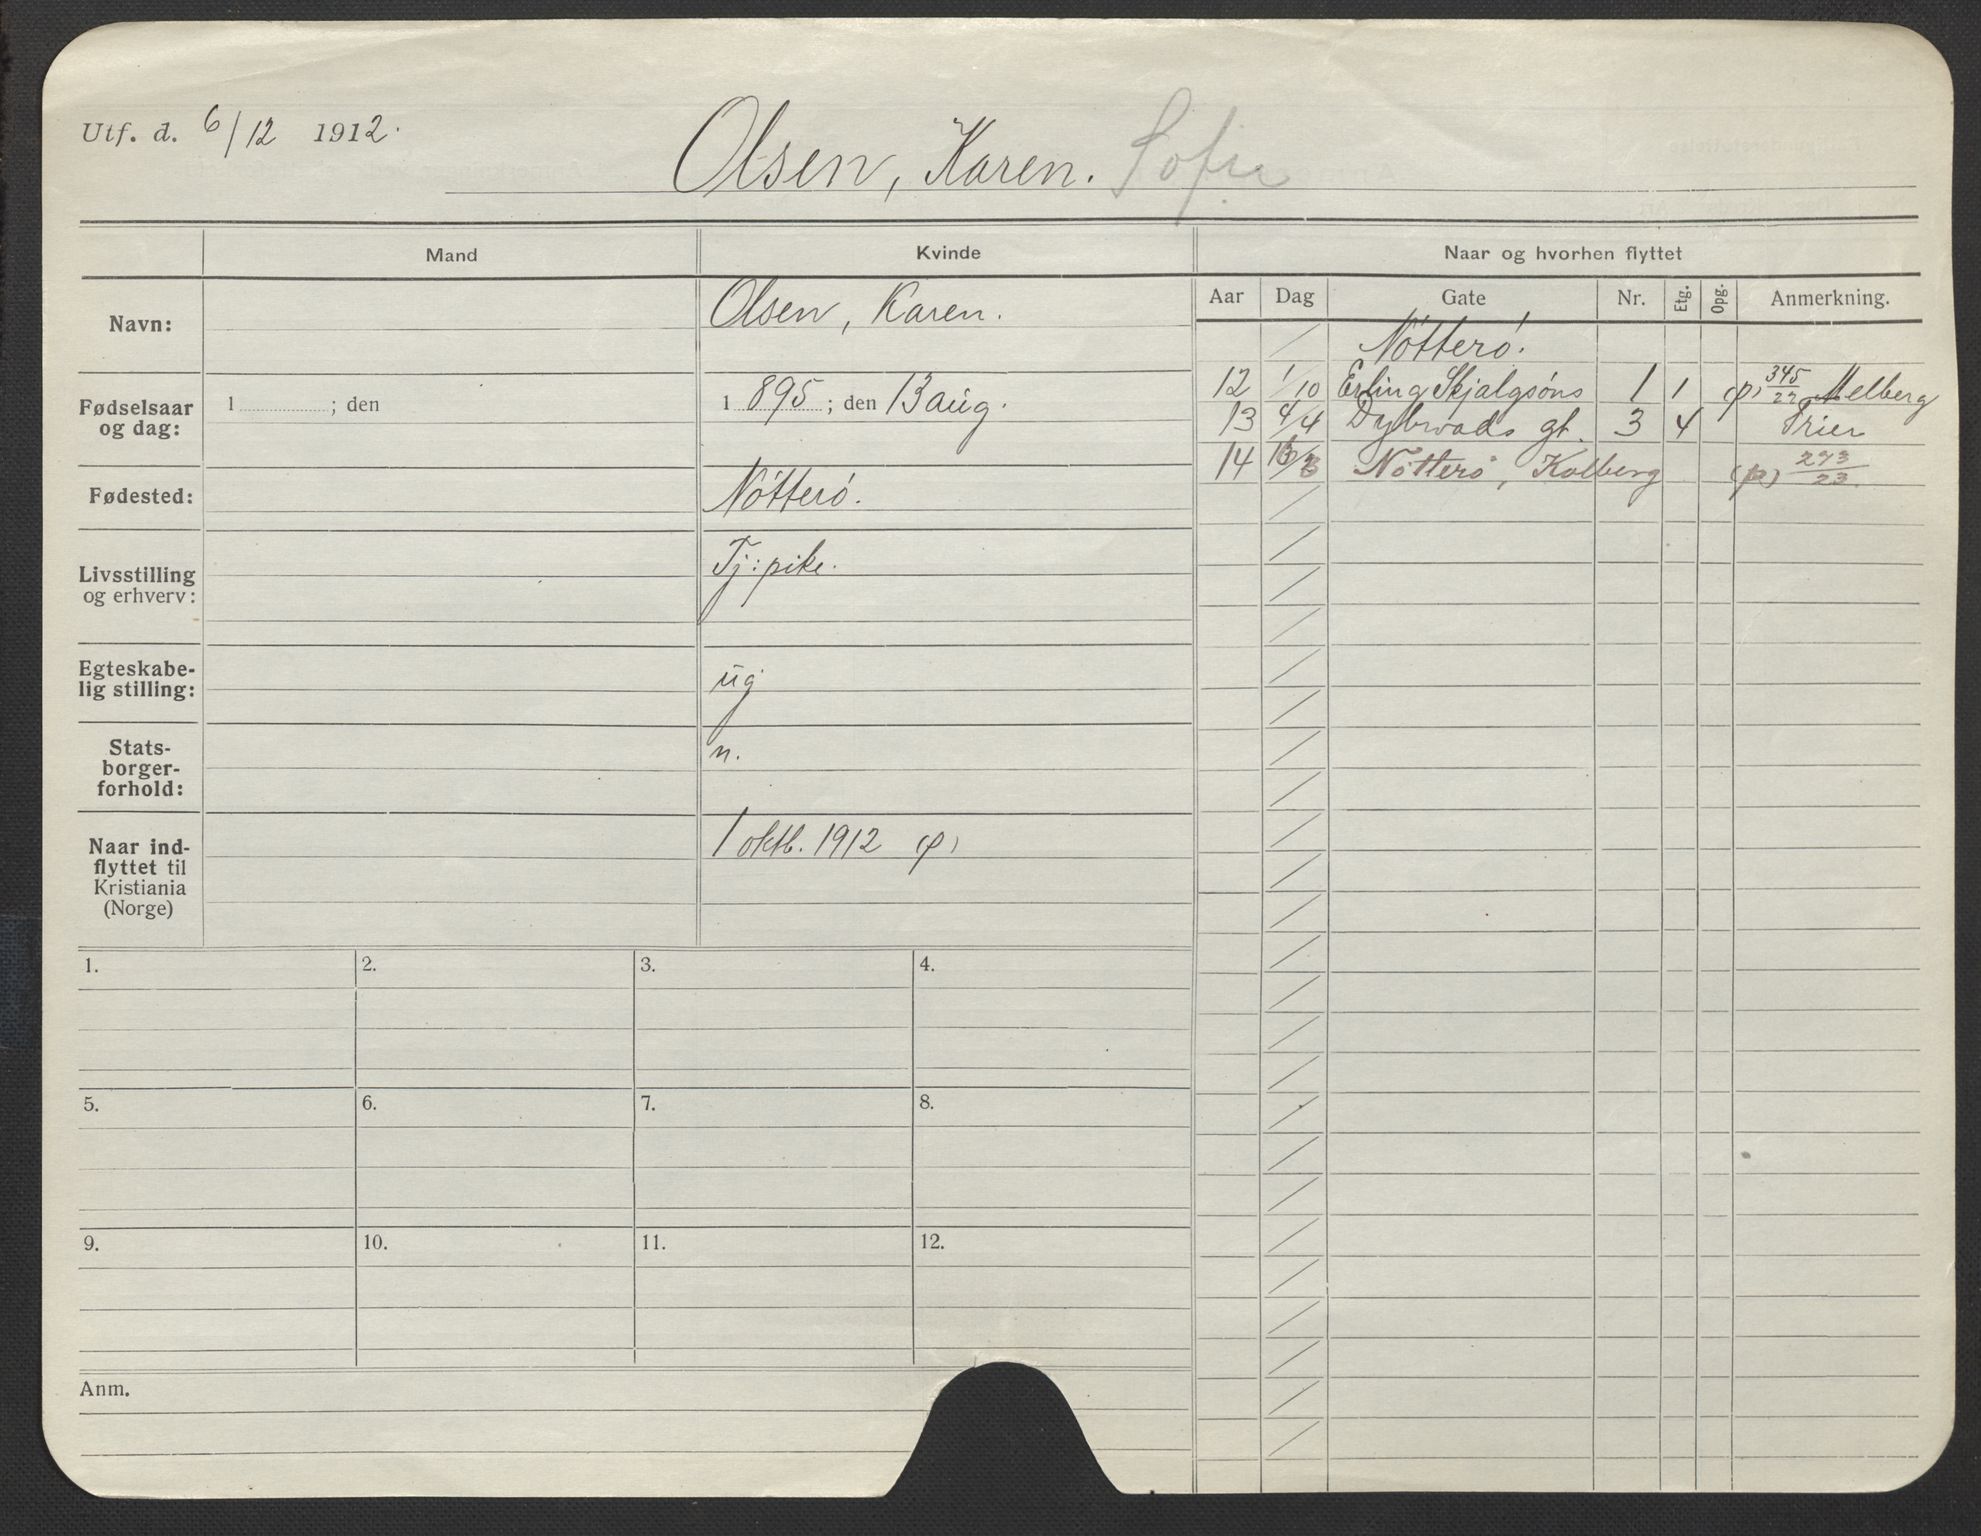 Utf. d. 6/12 1912.
Olsen, Karen. Sofie
Mand
Kvinde
Naar og hvorhen flyttet
Navn:
Olsen, Karen.
Fødselsaar og dag:
1 ; den
1 895 ; den 13 aug.
Fødested:
Nötterö.
Livsstilling og erhverv:
Tj: pike.
Egteskabe-
lig stilling:
ug
Stats-
borger-
forhold:
n.
Naar ind-
flyttet til
Kristiania
(Norge)
1 oktb. 1912 (p)
Aar Dag Gate Nr. Etg. Opg. Anmerkning.
Nötterö.
12 1/10 Erling Skjalgsöns 1 1 (p) 345/22 Melberg
13 4/4 Dybwads gt. 3 4 Trier
14 Nötterö, Kolberg (p) 273/23
1. 2. 3. 4.
5. 6. 7. 8.
9. 10. 11. 12.
Anm.